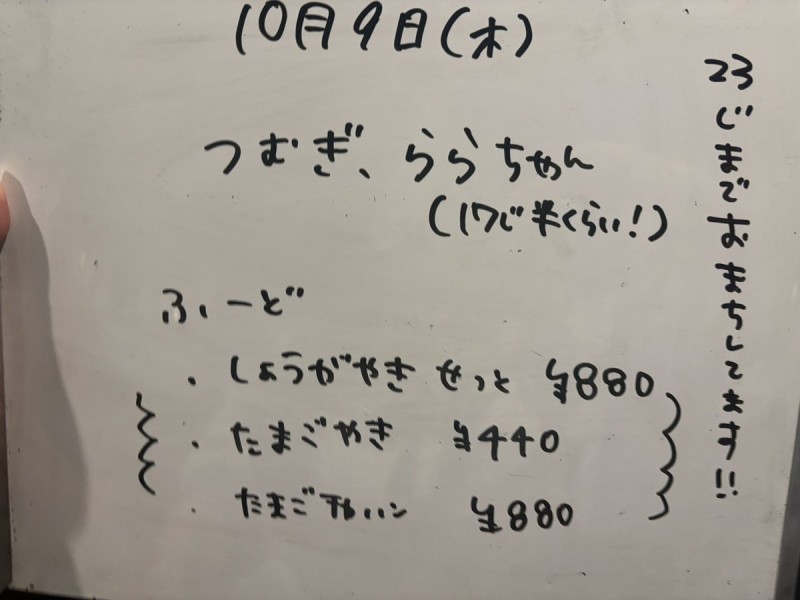 10月9日(木)
つむぎ、ららちゃん
(17じ半くらい!)
ふーど
・しょうがやき せっと ¥880
・たまごやき ¥440
・たまごチャーハン ¥880
23じまでおまちしてます!!